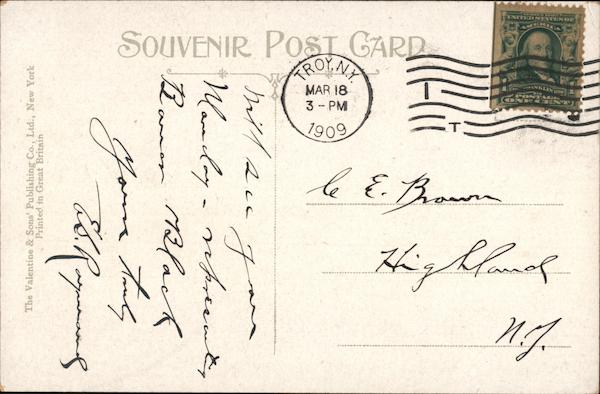 SOUVENIR POST CARD
TROY, N.Y.
MAR 18
3-PM
1909
I
T
UNITED STATES OF
AMERICA
FRANKLIN
POSTAGE
ONE CENT
The Valentine & Sons' Publishing Co., Ltd., New York
Printed in Great Britain
Will see you
Monday - representing
Baron Black
Yours truly
C E. Brown
Highland
N.Y.